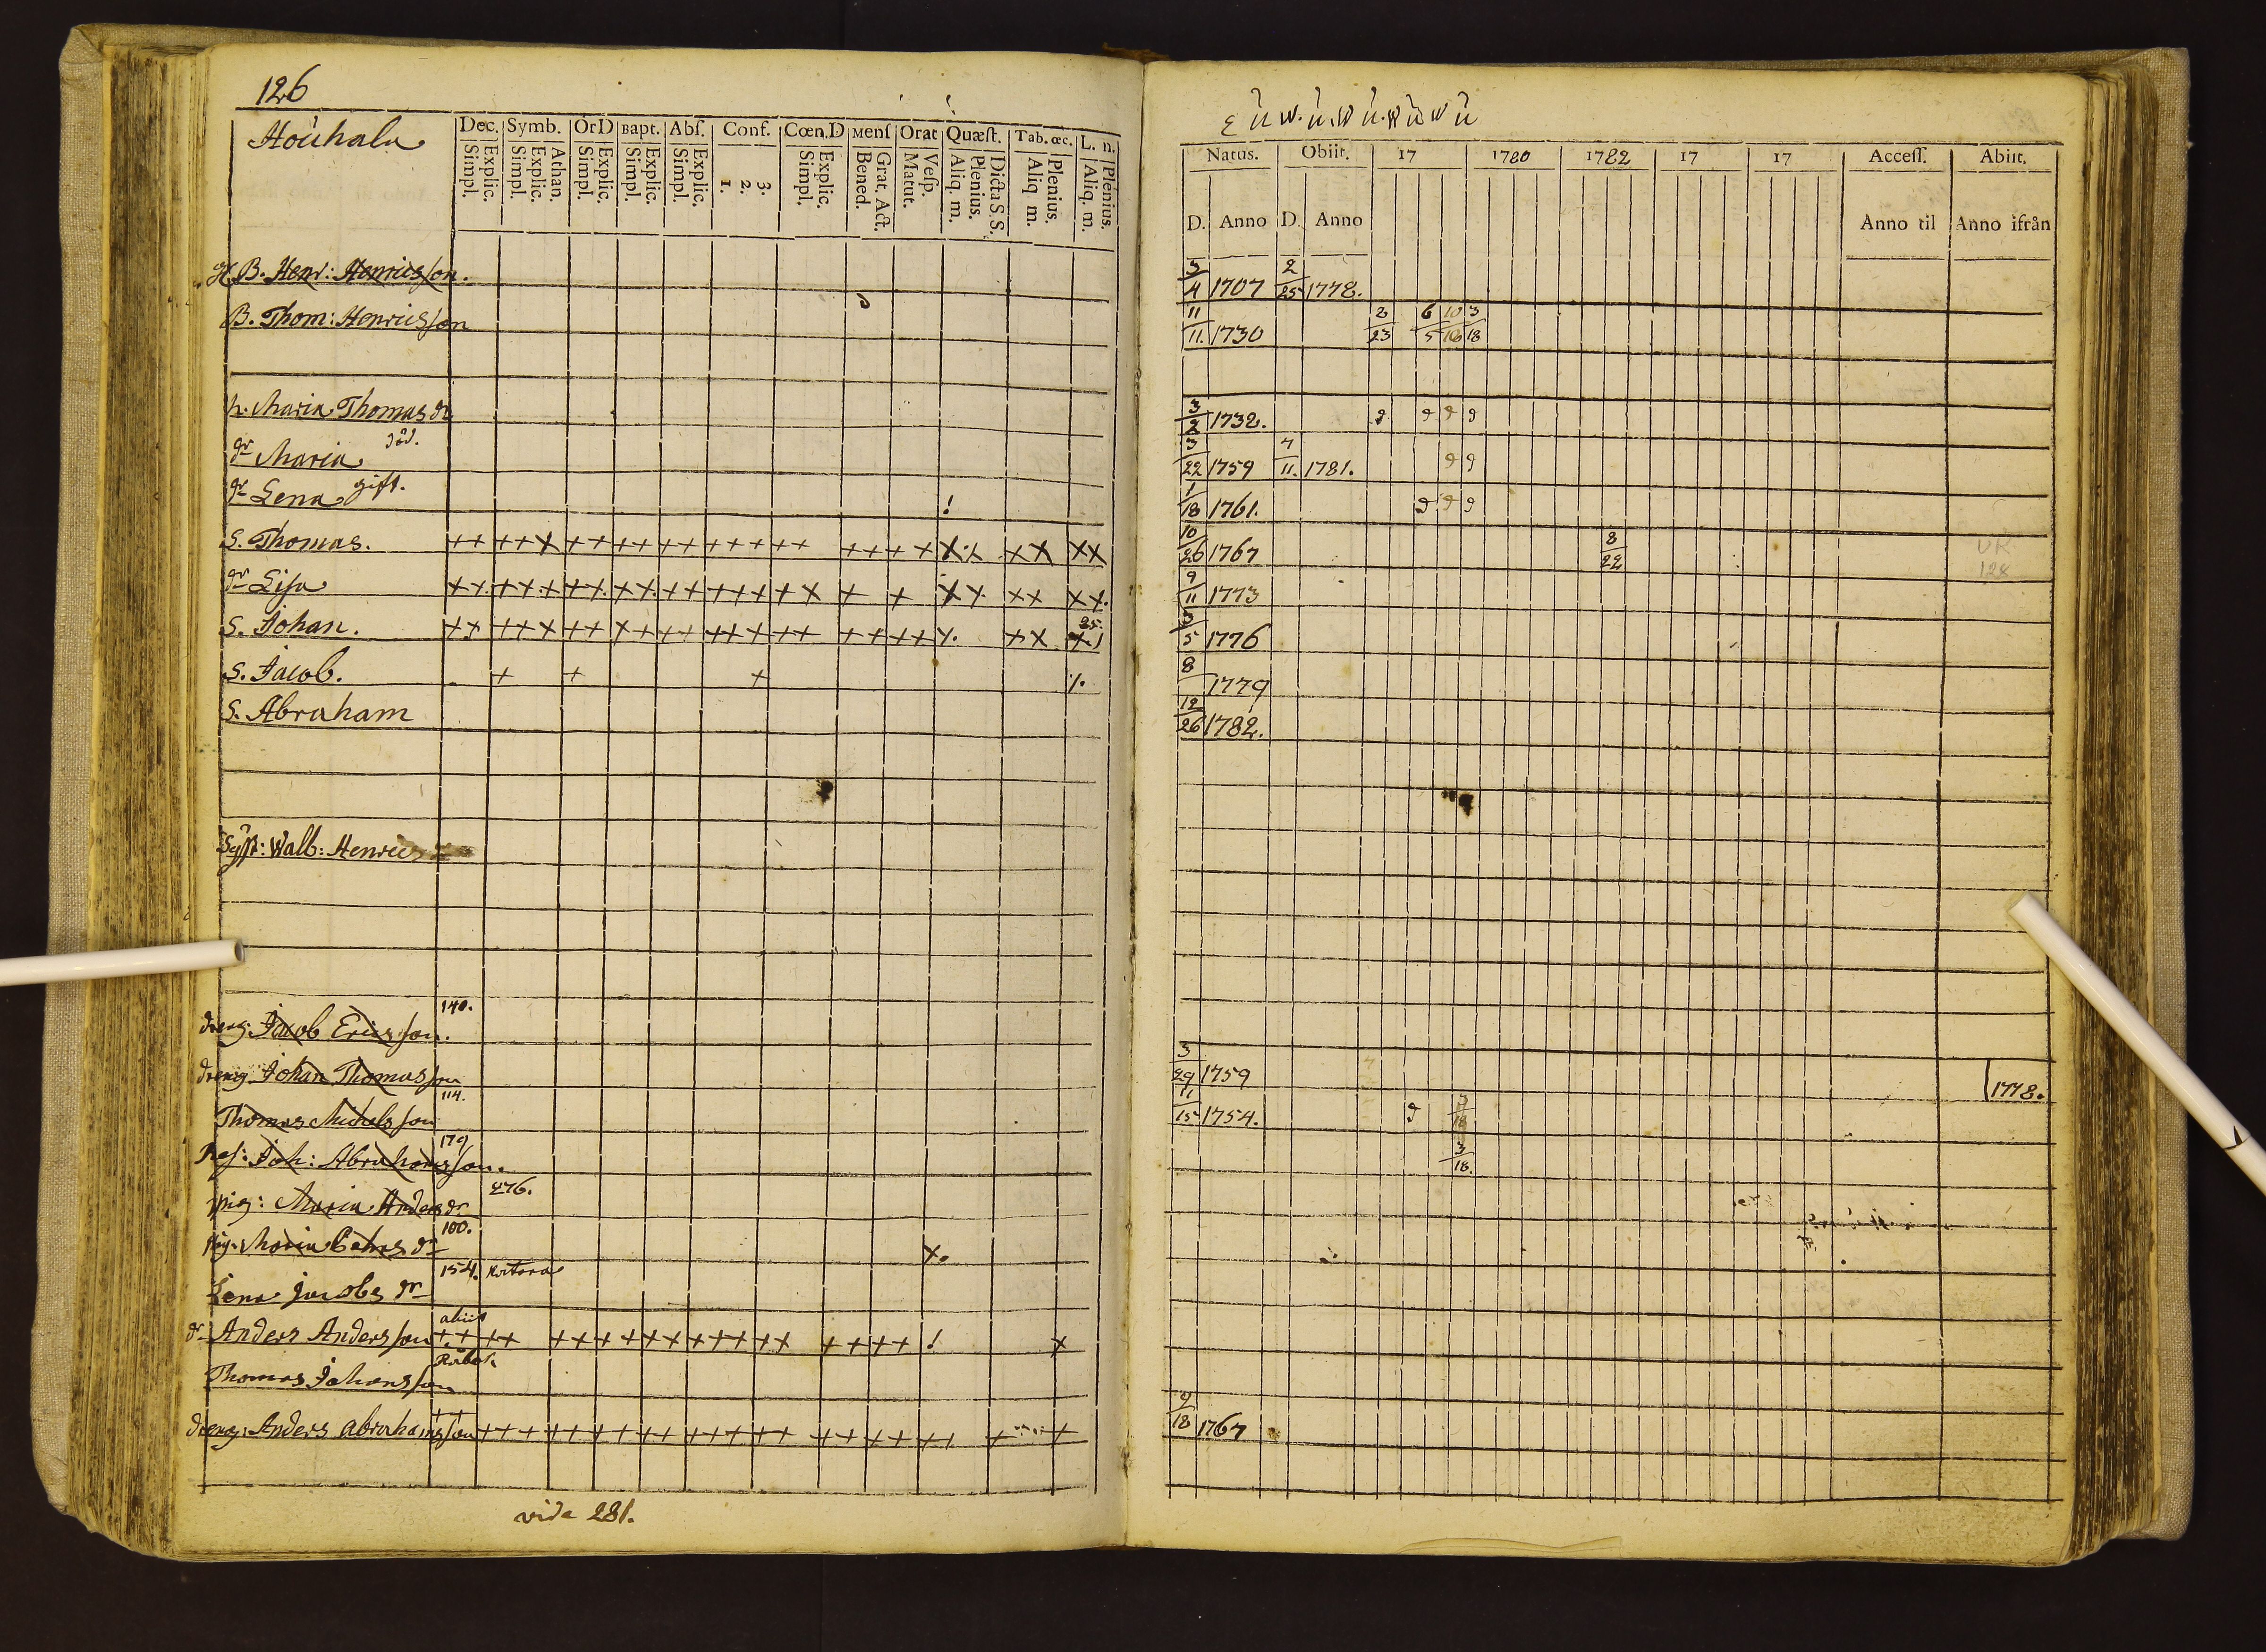 126
Houhala
Dec. Symb. OrD Bapt. Abſ. Conf. Cœn.D Menſ Orat Quæſt. Tab. œc. L. n.
Simpl. Explic. Simpl. Explic. Athan. Simpl. Explic. Simpl. Explic. Simpl. Explic. 1. 2. 3. Simpl. Explic. Bened. Grat. Act. Matut. Veſp. Aliq. m. Plenius. Dicta S.S. Aliq m. Plenius. Aliq. m. Plenius.
B. Henr: Henricsson.
B. Thom: Henricsson
h. Maria Thomas dr
dr Maria död.
dr Lena gift. !
S. Thomas. ++ ++x ++ ++ ++ +++ ++ ++ ++ x x xx xx
dr Lisa ++ +++ ++ ++ ++ +++ +x + + xx xx xx.
S. Johan. ++ ++x ++ x+ ++ +++ ++ ++ ++ x. xx x 25.
S. Jacob. + + + x.
S. Abraham
Syst: Walb: Henrics
dreng: Jacob Ericsson. 140.
dreng Johan Thomasson
Thomas Michelsson 114.
Joh: Abrahamsson. 179
pig: Maria Anders dr 276.
pig. Maria dr 100. x.
Lena Jacobs dr 154.
dr Anders Andersson abiit ++ ++ +++ +++ +++ ++ ++++ ! x
Thomas Johansson
dreng: Anders Abrahamsson ++ +++ ++ ++ ++ +++ ++ ++ ++ ++ + +
vide 281.
Natus. Obiit. 17 1780 1782 17 17 Acceſſ. Abiit.
D. Anno D. Anno Anno til Anno ifrån
3/4 1707 2/25 1778.
11/11. 1730 2/23 6/5 10/16 3/18
3/2 1732.
3/22 1759 4/11. 1781.
1/18 1761.
10/26 1767 8/22
9/11 1773 128
3/5 1776
8 1779
12/26 1782.
3/29 1759 1778.
11/15 1754. 3/18
3/18.
9/18 1767